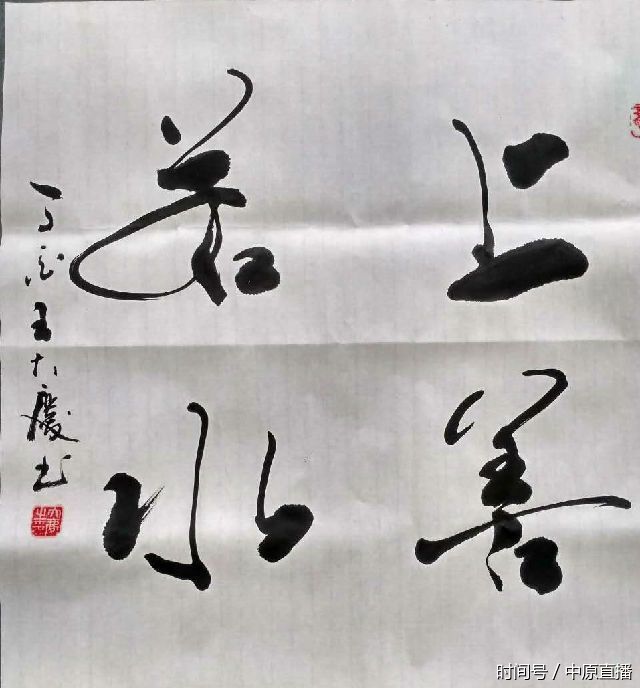 上善
若水
王大慶书
时间号 / 中原直播